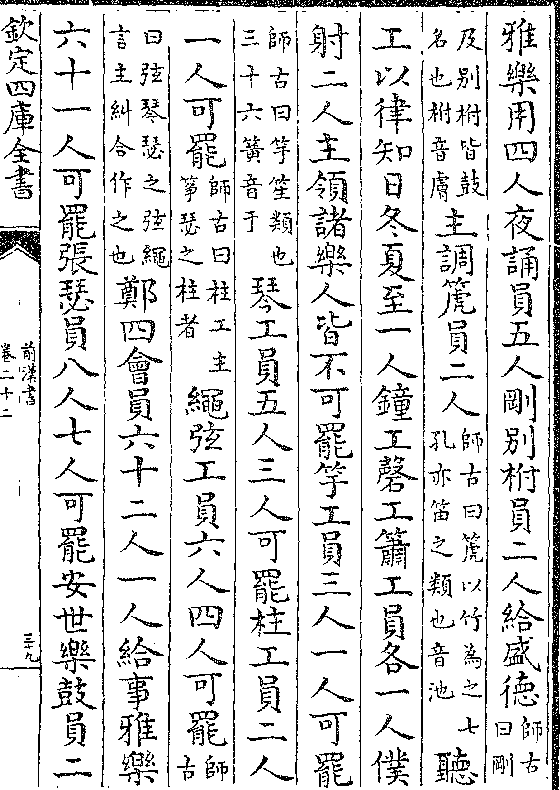 雅樂用四人夜誦員五人剛别柎員二人給盛德師古曰剛
及别柎皆鼓名也柎音膚主調篪員二人師古曰篪以竹為之七孔亦笛之類也音池聽
工以律知日冬夏至一人鐘工磬工簫工員各一人僕
射二人主領諸樂人皆不可罷竽工員三人一人可罷
師古曰竽笙類也三十六簧音于琴工員五人三人可罷柱工員二人
一人可罷師古曰柱工主箏瑟之柱者繩弦工員六人四人可罷師古
曰弦琴瑟之弦繩言主糾合作之也鄭四會員六十二人一人給事雅樂
六十一人可罷張瑟員八人七人可罷安世樂鼓員二
欽定四庫全書
前漢書
卷二十二
三九